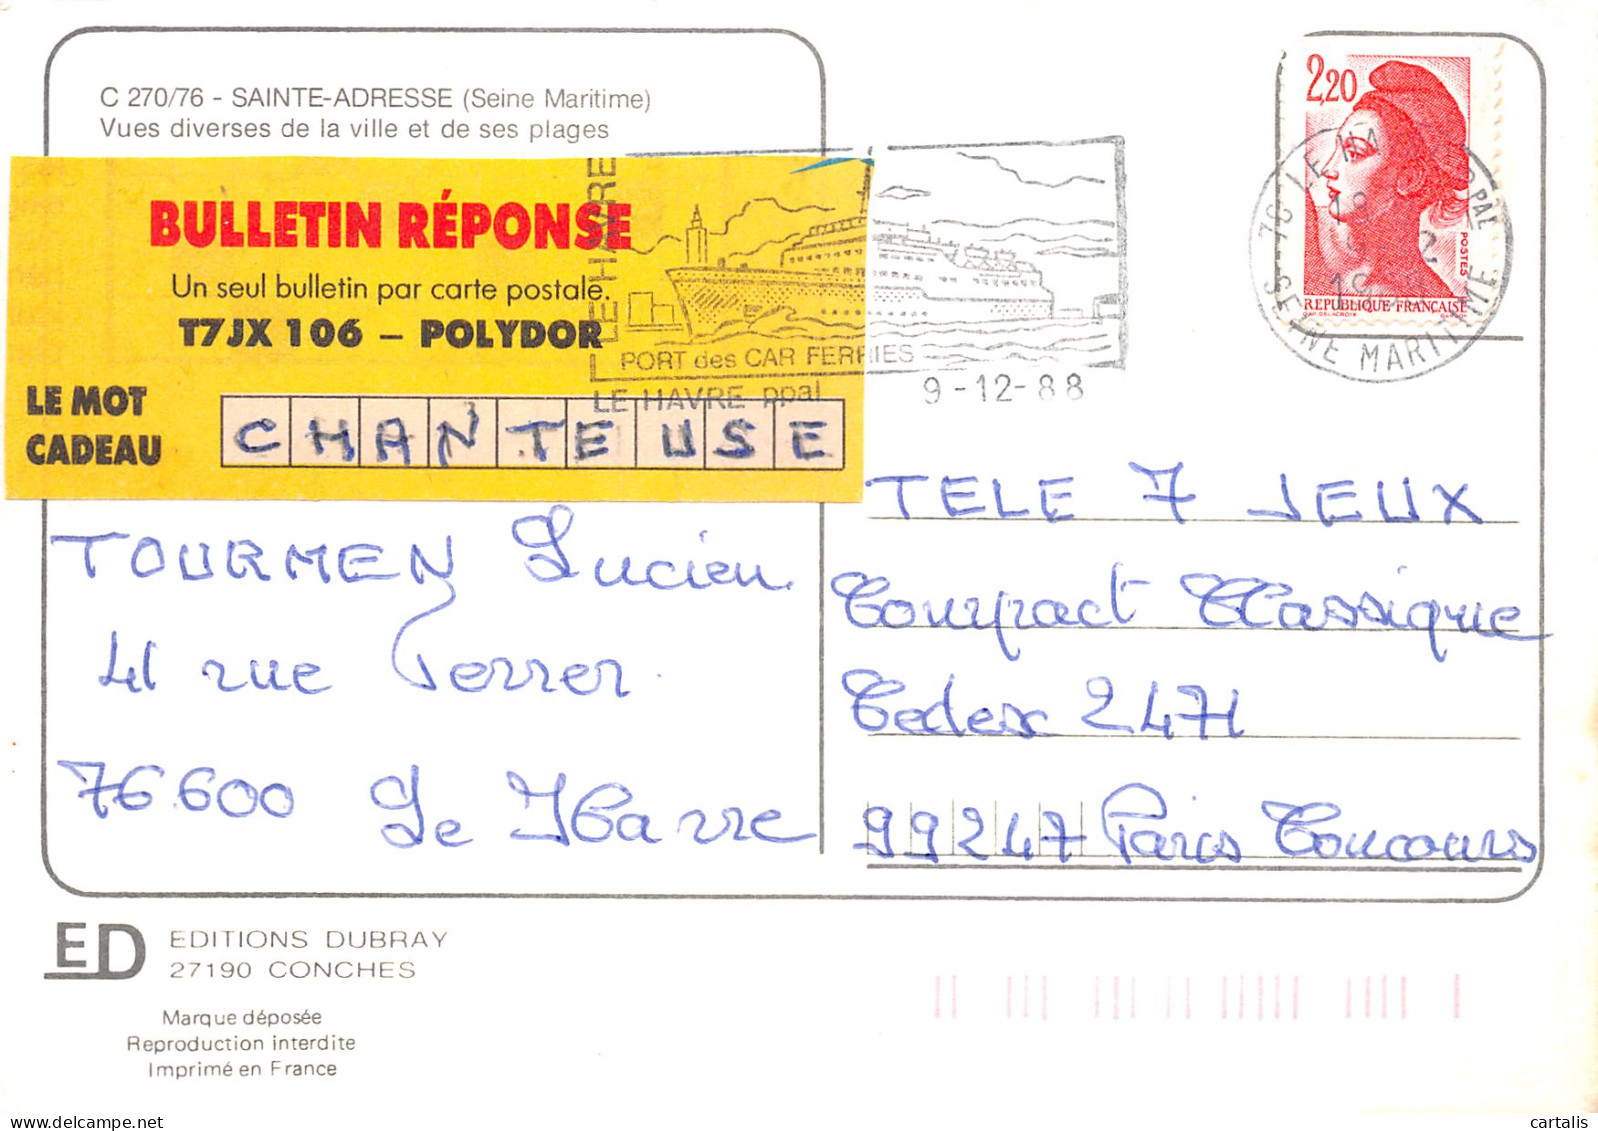 C 270/76 - SAINTE-ADRESSE (Seine Maritime)
Vues diverses de la ville et de ses plages
BULLETIN RÉPONSE
Un seul bulletin par carte postale.
T7JX 106 – POLYDOR
LE MOT
CADEAU
CHANTEUSE
LE HAVRE
PORT des CAR FERRIES
LE HAVRE ppal
9-12-88
2,20
POSTES
REPUBLIQUE FRANÇAISE
76 LE HA PAL
SEINE MARITIME
TOURMEN Lucien
41 rue Ferrer
76600 Le Havre
TELE 7 JEUX
Compact Classique
Cedex 2471
99247 Paris Concours
ED
EDITIONS DUBRAY
27190 CONCHES
Marque déposée
Reproduction interdite
Imprimé en France
cartalis